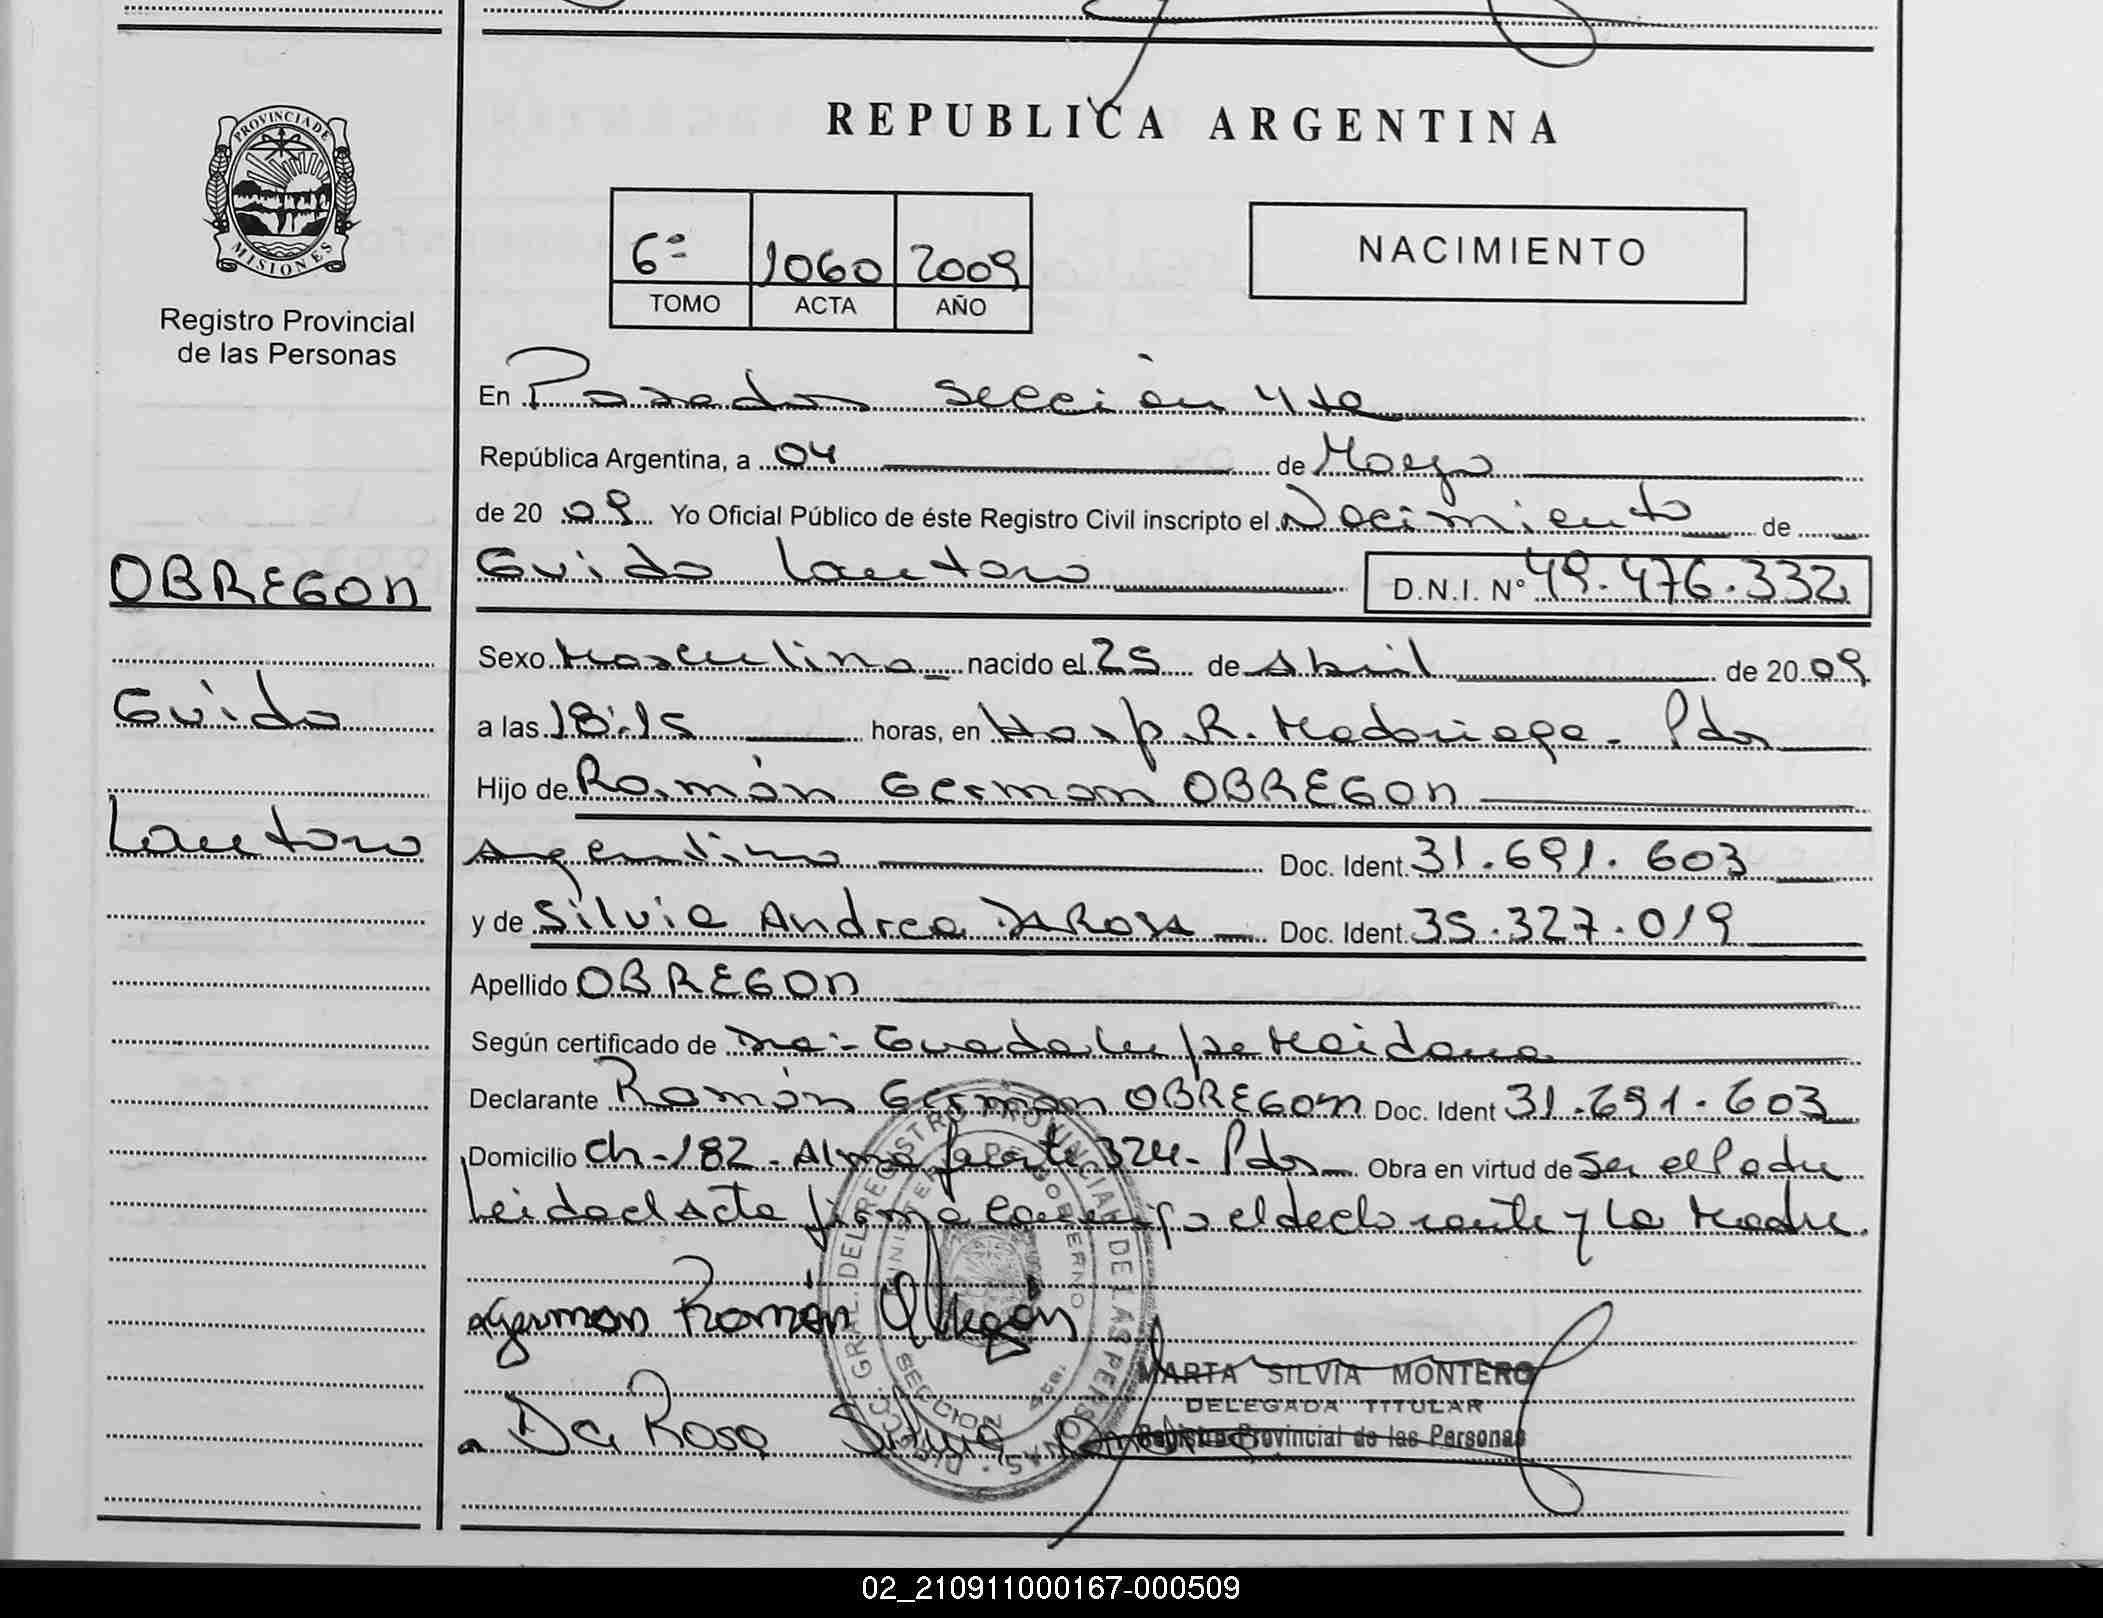 REPUBLICA ARGENTINA
PROVINCIA DE
MISIONES
Registro Provincial
de las Personas
6ª 1060 2009
TOMO ACTA AÑO
NACIMIENTO
En Posadas Sección 4ta
República Argentina, a 04 de Mayo
de 20 09 Yo Oficial Público de éste Registro Civil inscripto el Nacimiento de
Guido Lautaro D.N.I. Nº 49.476.332
OBREGON
Guido
Lautaro
Sexo Masculino nacido el 25 de Abril de 20 09
a las 18:15 horas, en Hosp. R. Madariaga - Pdas
Hijo de Ramón German OBREGON
Argentino Doc. Ident. 31.691.603
y de Silvia Andrea DA ROSA Doc. Ident. 35.327.019
Apellido OBREGON
Según certificado de Dra:- Guadalupe Maidana
Declarante Ramón German OBREGON Doc. Ident 31.691.603
Domicilio Ch-182- Almafuerte 324- Pdas Obra en virtud de Ser el Padre
Leida el Acta firma conmigo el declarante y la Madre.
German Román Obregón
Da Rosa Silvia
MARTA SILVIA MONTERO
DELEGADA TITULAR
Registro Provincial de las Personas
DIRECC. GRAL. DEL REGISTRO PROVINCIAL DE LAS PERSONAS
MINISTERIO DE GOBIERNO
SECCION 4ta
02_210911000167-000509